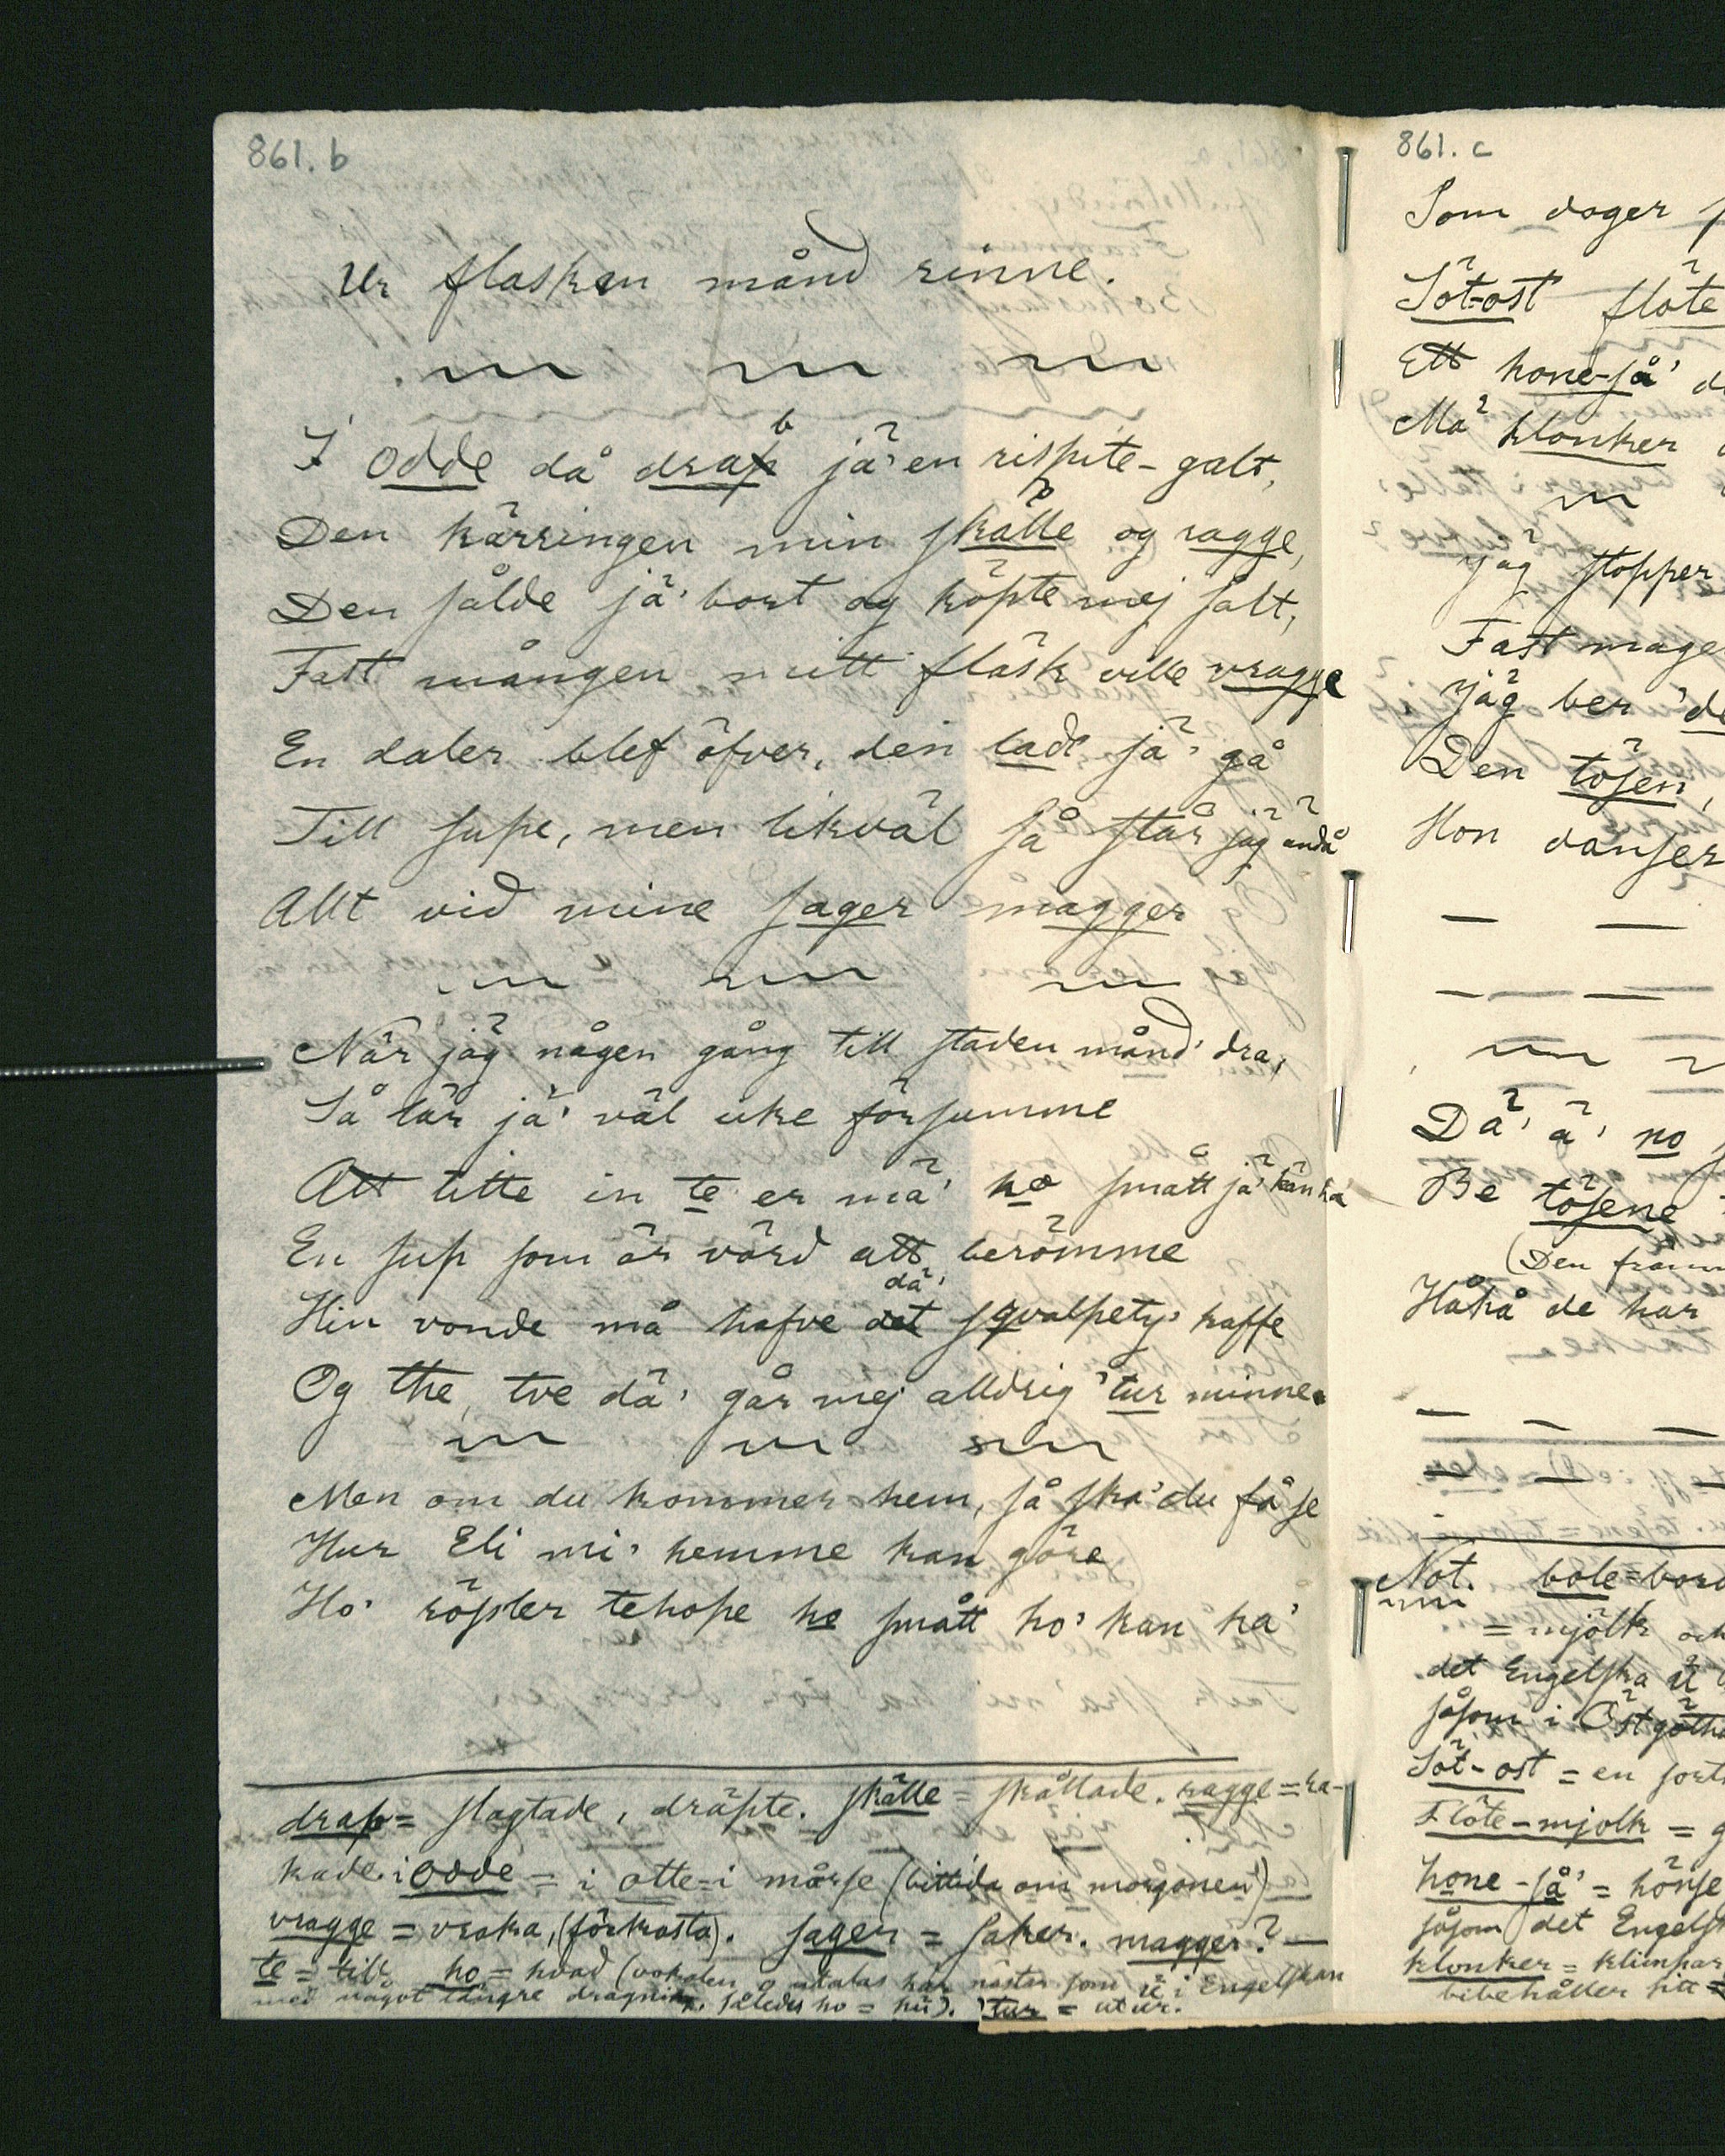 861. b
Ur flasken månd rinne.
I Odde då drap b jä' en rispite-galt,
Den kärringen min skälle og ragge,
Den sålde jä' bort og köpte mej salt,
Fast mången mitt fläsk ville vragge
En daler blef öfver, den lad' jä' gå
Till supe, men likväl så står jäg ändå
Allt vid mine sager magger
När jäg någen gång till staden månd' dra,
Så lär jä' väl icke försumme
Att titte in te er mä' ho smått jä' kan ha
En sup som är värd att berömme
dä'
Hin vonde må hafve det sqvalpety' kaffe
Og the, tve dä' går mej alldrig 'tur minne.
Men om du kommer hem, så ska' du få se
Hur Eli mi' hemme kan göre
Ho' röpler tehope ho smått ho' kan ha'
drap = slagtade, dräpte. skälle = skållade. ragge = ra-
kade. i Odde = i otte = i mörse (bittida om morgonen)
vragge = vraka, (förkasta). sager = saker. magger? —
te = till, ho = hvad (vokalen o uttalas här nästan som u i Engelskan
med något längre dragning, således ho = hu). 'tur = utur.
861. c
Som doger
Söt-ost flöte
Ett hone-så'
Mä' klonker
jäg stopper
Fast mage
jäg ber 'de
Den tösen,
Hon danser
Dä' ä' no
Be tösene
(Den främ
Håkå de har
Not. bole = bord
= mjölk och
det Engelska u
såsom i Östgöthe
Söt-ost = en sorts
Flöte-mjolk = g
hone-så' = hönse
såsom det Engelsk
klonker = klimpar
bibehåller sitt